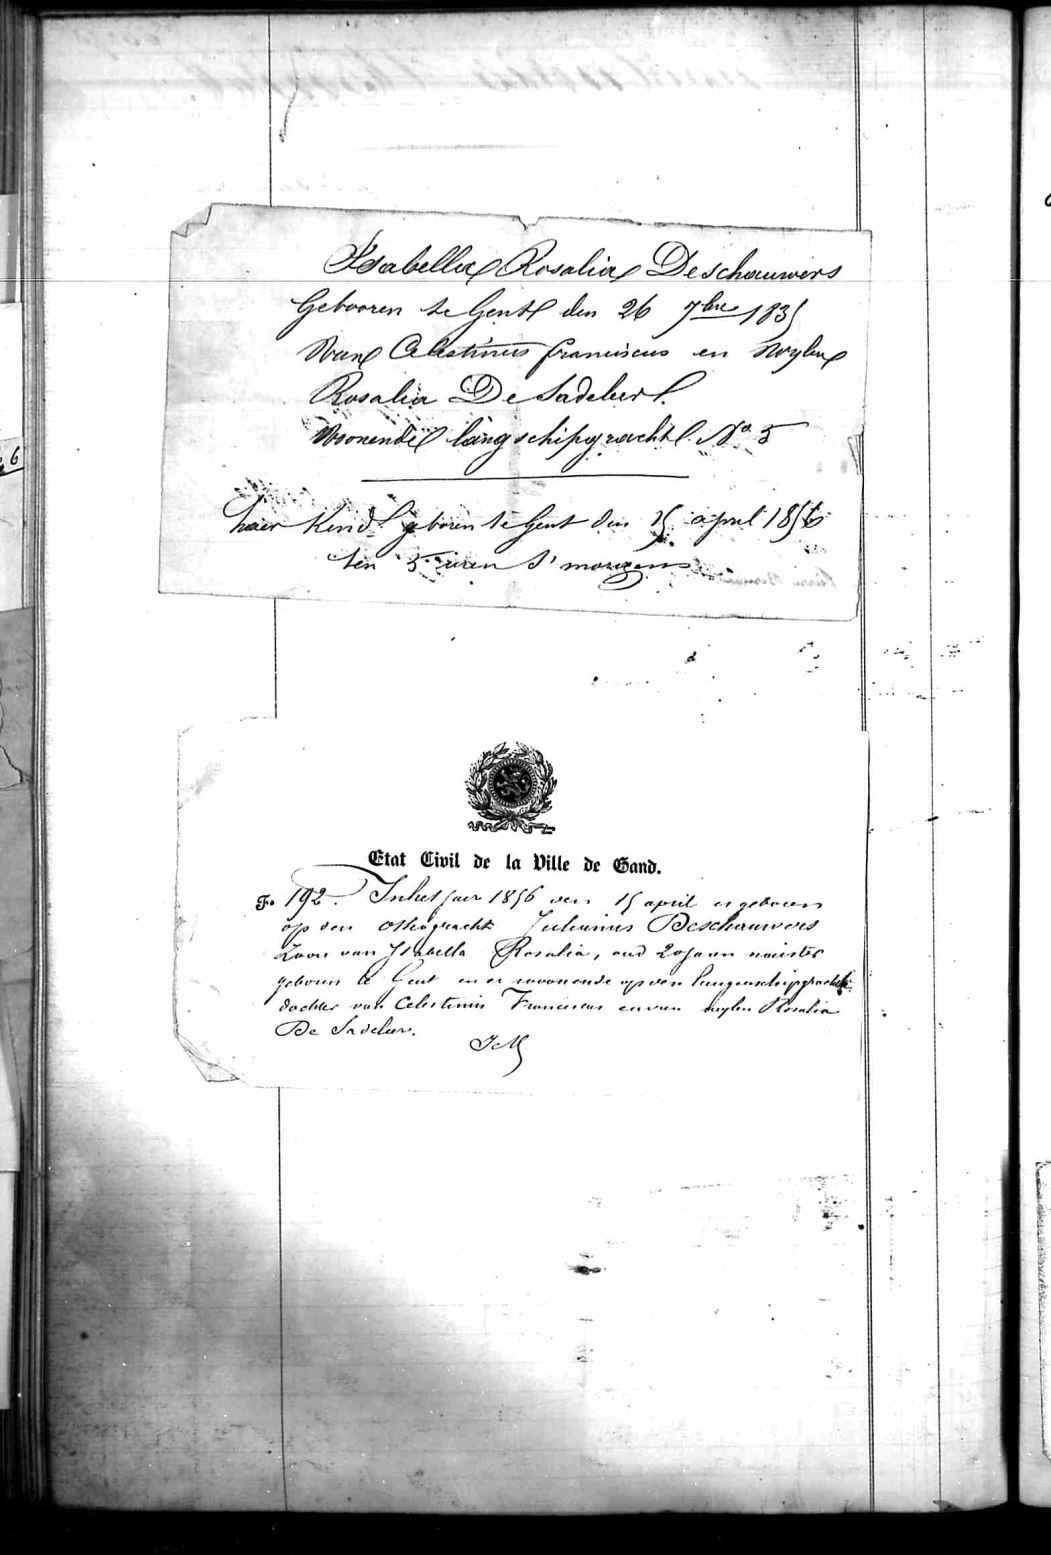 Isabella Rosalia Deschauwers
Gebooren te Gent den 26 7bre 1835
Van Celestinus franciscus en Wylen
Rosalia De Sadeleer
Woonende langschipgracht No 5
haer Kind geboren te Gent den 15 april 1856
ten 5 uren s' morgens
Etat Civil de la Ville de Gand.
Fo 192. In het jaer 1856 den 15 april is geboren
op den gracht Julianus Deschauwers
Zoon van Isabella Rosalia, oud 20 jaeren
geboren te Gent en er woonende op den langenschipgracht
dochter van Celestinus Franciscus en van wylen Rosalia
De Sadeleer.